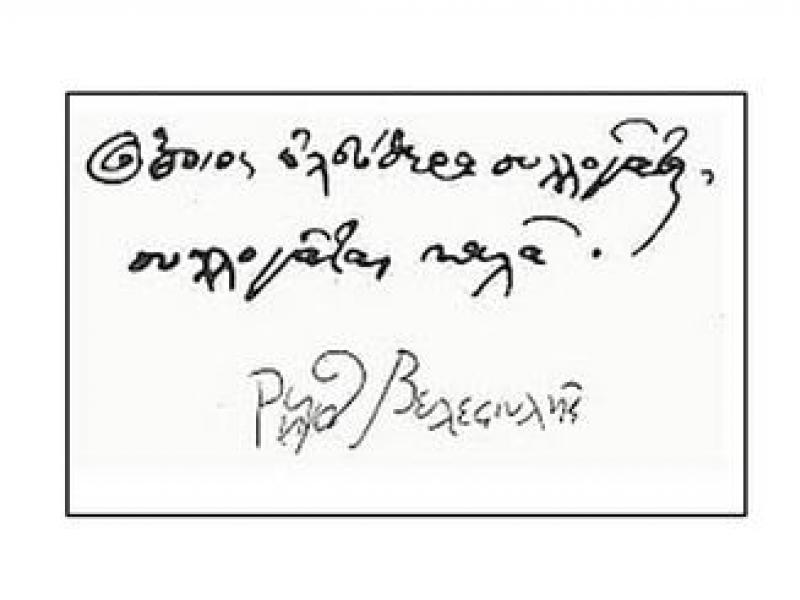 Ὅποιος ἐλεύθερα συλλογᾶται,
συλλογᾶται καλά.
Ρήγας Βελεστινλῆς